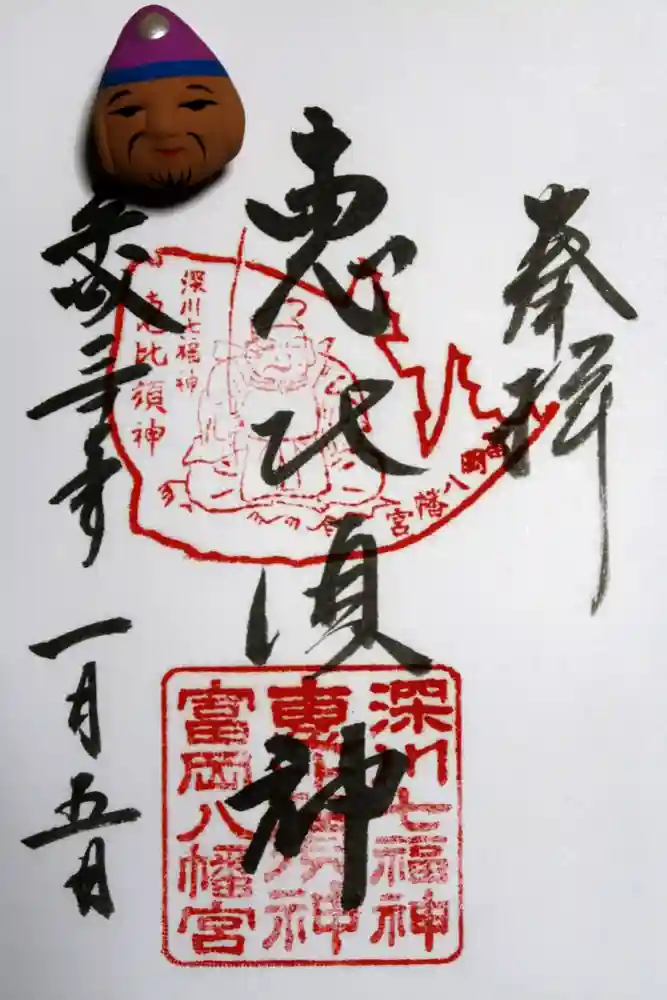 奉拝
恵比須神
平成三十年 一月五日
深川七福神
恵比須神
富岡八幡宮
深川七福神
恵比須神
富岡八幡宮